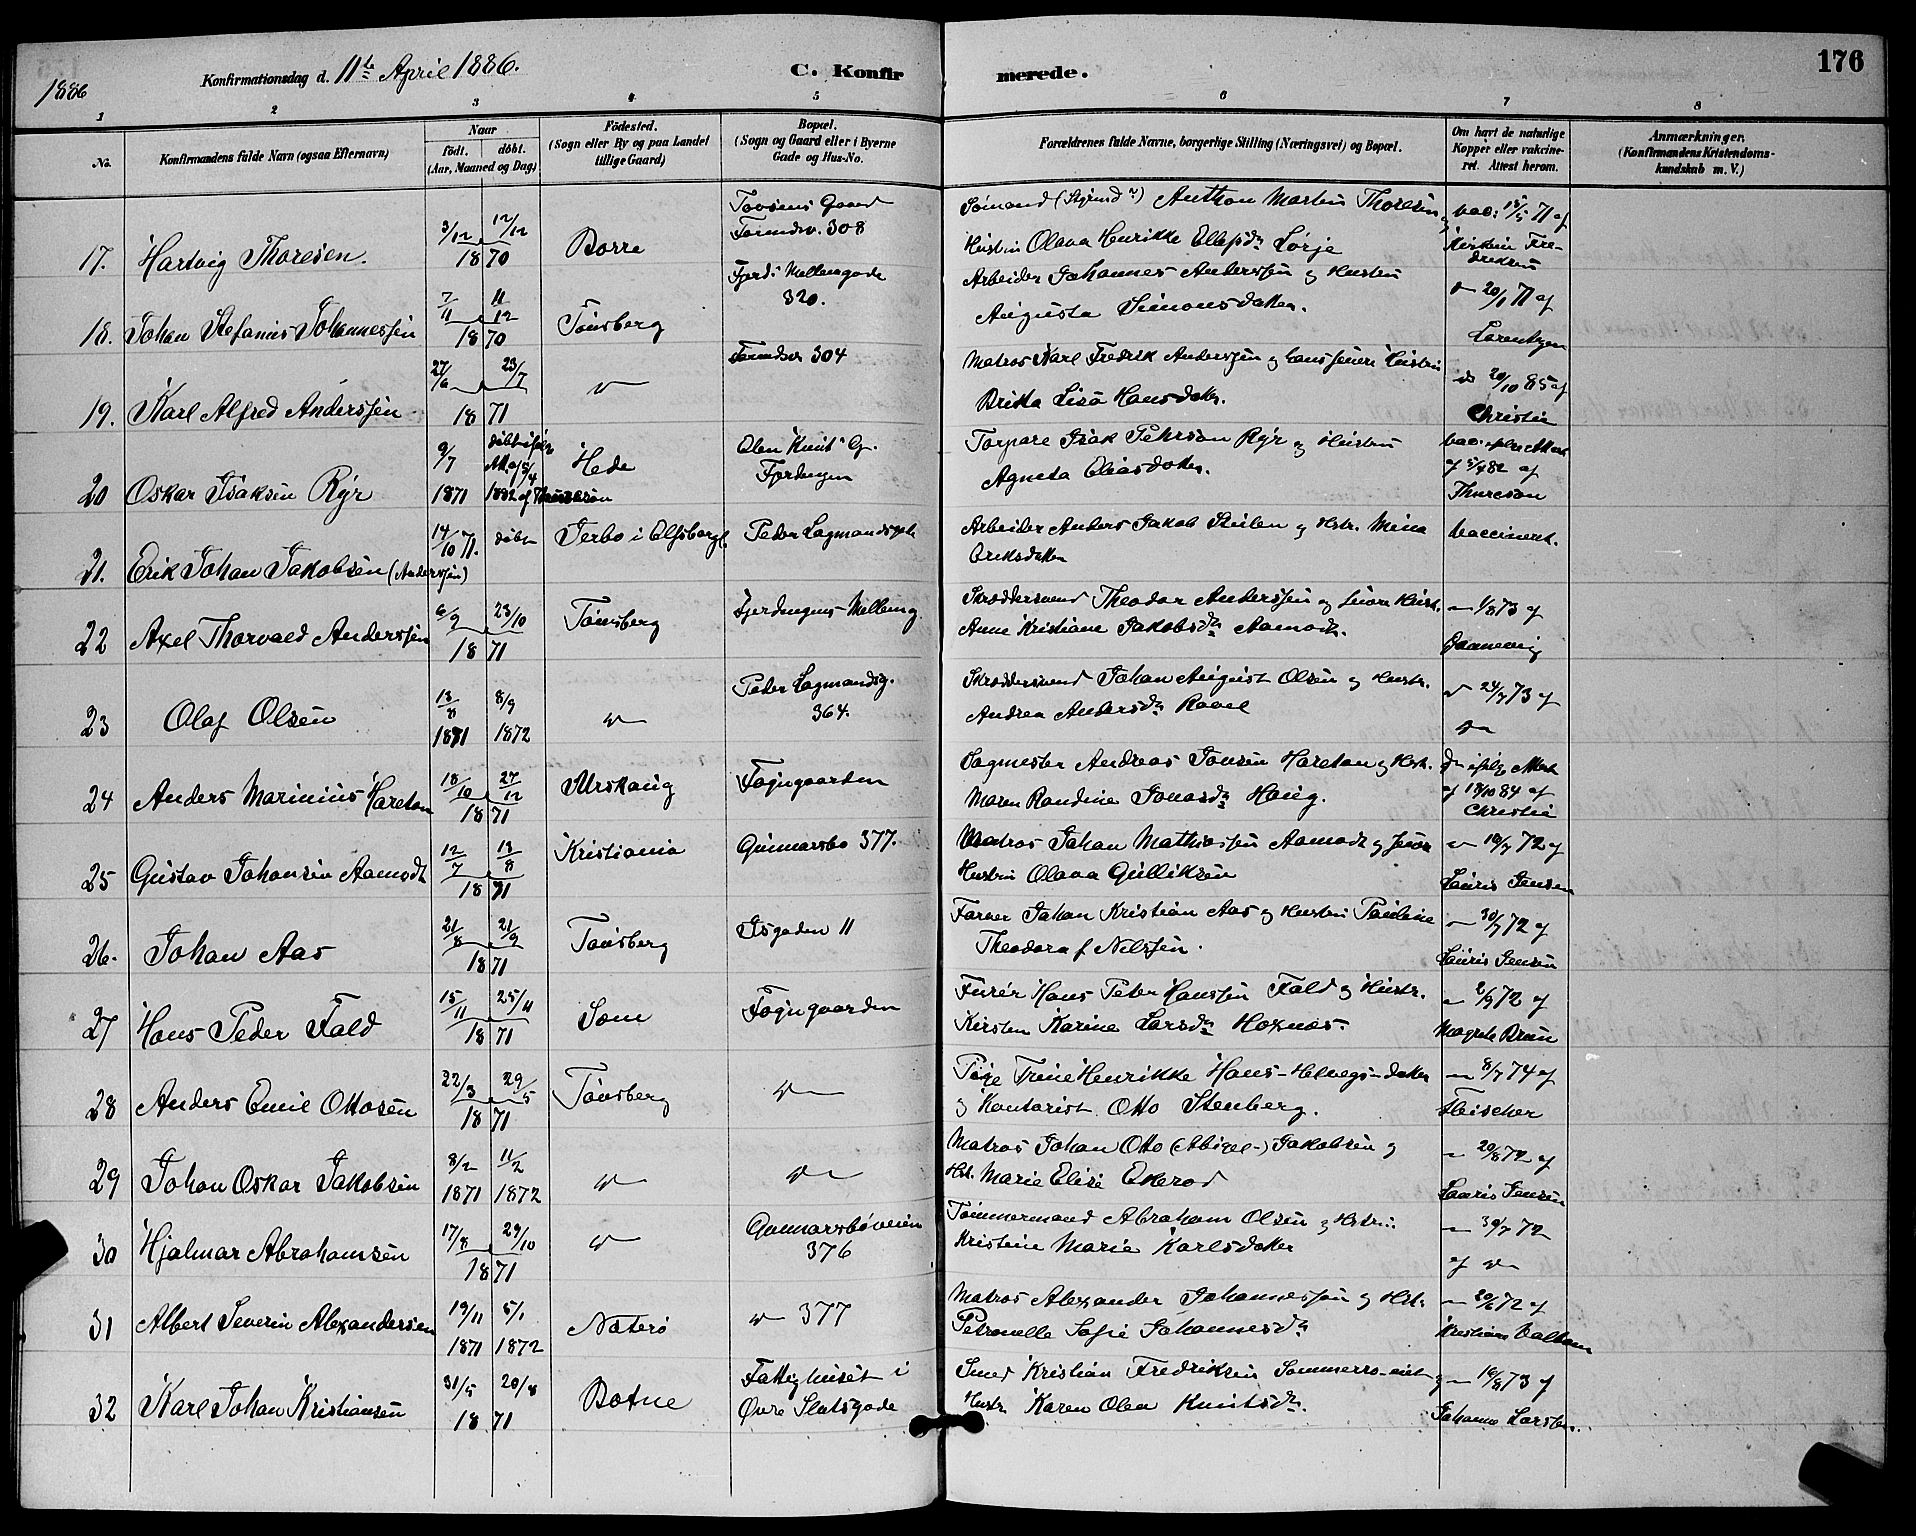 1886
Konfirmationsdag d. 11te April 1886.
C. Konfirmerede.
176
1 2 3 4 5 6 7 8
No.
Konfirmandens fulde Navn (ogsaa Efternavn)
Naar
födt. döbt.
(Aar, Maaned og Dag)
Födested.
(Sogn eller By og paa Landet
tillige Gaard)
Bopæl.
(Sogn og Gaard eller i Byerne
Gade og Hus-No.
Forældrenes fulde Navne, borgerlige Stilling (Næringsvei) og Bopæl.
Om havt de naturlige
Kopper eller vakcine-
ret. Attest herom.
Anmærkninger,
(Konfirmandens Kristendoms-
kundskab m. V.)
17. Hartvig Thoresen. 3/12 12/12 1870 Borre
Gaard
308
Sömand Anthon Martin Thoresen
Hustru Olava Henrikke Ellefsdr
vac: 15/5 71 af
Fre-
driksen
18. Johan Stefanus Johannessen 7/11 11/12 1870 Tönsberg
Mellemgade
320.
Arbeider Johannes Anderssen og Hustru
Augusta Simonsdatter.
20/1 71 af
Lorentzen
19. Karl Alfred Anderssen 27/6 23/7 1871
304
Matros Karl Fredrik Anderssen og Hustru
Britta Lisa Hansdatter.
20/10 85 af
Christie
20 Oskar Isaksen Ryr 9/7 1871
Att. af 5/4
1882 af Thuresson
Hede
Fjerdingen
Torpare Isak Pehrson Ryr og Hustru
Agneta Eliasdatter.
af 5/4 82 af
Thureson
21. Erik Johan Jakobsen (Anderssen) 14/10 71. döbt Terbo i Elfsborgl. Peder Lagmandsgade
Arbeider Anders Jakob og Hstr. Mina
Eriksdatter
Vaccineret.
22 Axel Thorvald Anderssen 6/9 23/10 1871 Tönsberg Fjerdingens Mellemg
Skræddersvend Theodor Anderssen og Hustr.
Anne Kristiane Jakobsdr Aamodt.
1/8 73 af
Daanevig
23 Olaf Olsen 13/8 1871 8/9 1872
Peder Lagmandsg.
364.
Skræddersvend Johan August Olsen og Hustr.
Andrea Andersdr
24/7 73 af
24 Anders Marinius Haretan 18/10 27/12 1871 Urskaug Föingaarden
Sagmester Andreas Jonsen Haretan og Hstr.
Maren Randine Jonasdr Haug.
af 18/10 84 af
Christie
25 Gustav Johansen Aamodt 12/7 13/8 1871 Kristiania Gunnarsbo 377.
Matros Johan Mathiassen Aamodt og
Hustru Olava Gulliksen
18/7 72 af
Lauris Jensen
26. Johan Aas 21/8 21/9 1871 Tönsberg 11
Farver Johan Kristian Aas og Hustru Pauline
Theodora f. Nilssen.
30/7 72 af
Lauris Jensen
27 Hans Peder Fald 15/11 25/11 1871 Sem Föingaarden
Furér Hans Peter Hanssen Fald og Hustr.
Kirsten Karine Larsdr Hoxnes.
2/9 72 af
Magrete Bruun
28 Anders Emil Ottosen 22/3 29/5 1871 Tönsberg
Pige Trine Henrikke Hans-Helvegs-datter
og Kontorist Otto Stenberg.
8/7 74 af
Fleischer
29 Johan Oskar Jakobsen 8/2 1871 11/2 1872
Matros Johan Otto (Abigel-) Jakobsen og
Hst. Marie Elise Ekerod
20/8 72 af
Lauris Jensen
30 Hjalmar Abrahamsen 17/8 29/10 1871
Gunnarsböveien
376
Tömmermand Abraham Olsen og Hstru
Kristine Marie Karlsdatter
30/7 72
af
31 Albert Severin Alexandersen 19/11 1871 5/1 1872 Nöterö 377
Matros Alexander Johannessen og Hstr.
Petronelle Sofie Johannesdr
20/6 72 af
32 Karl Johan Kristiansen 31/5 20/8 1871 Botne
Fattighuset i
Övre Slotsgade
Smed Kristian Fredriksen
Hustr. Karen Olea Knutsdr.
16/8 73 af
Johanne Larsen